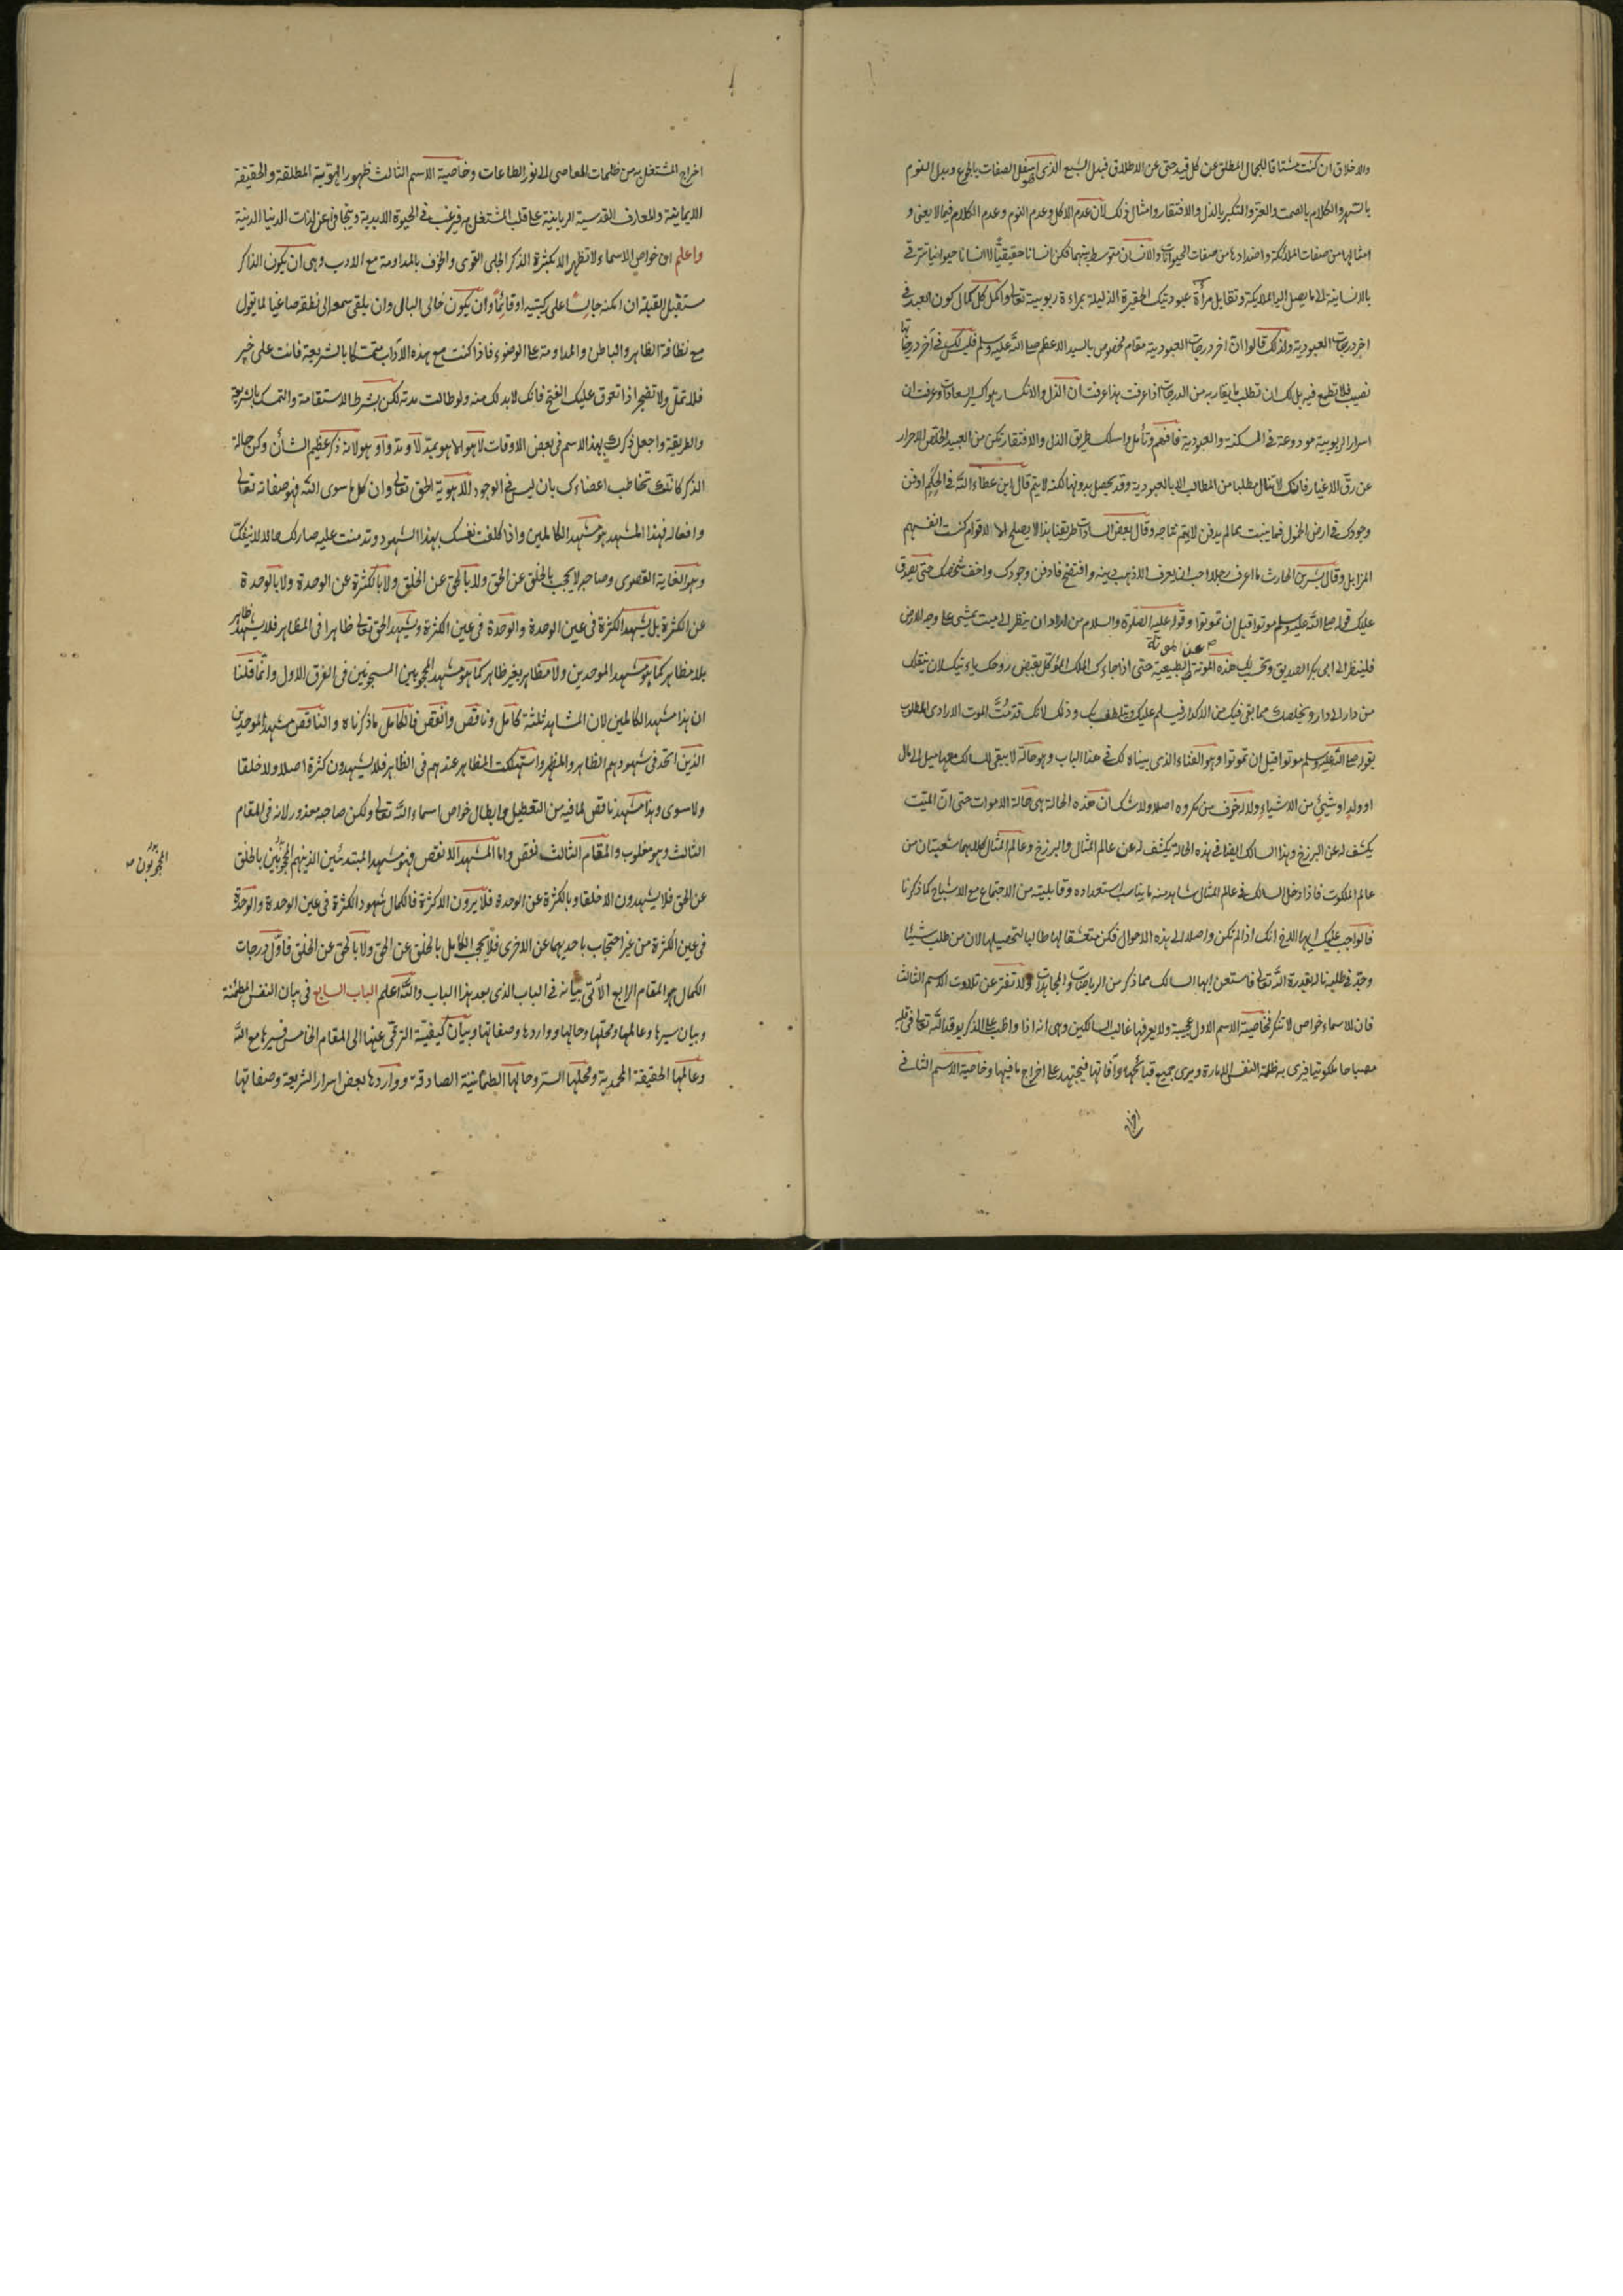 والاخلاق ان كنت مشتاقا للجمال المطلق عن كل قيد حتى عن الاطلاق فبدل الشبع الذى هو اسفل الصفات بالجوع وبدل النوم
بالسهر والكلام بالصمت والعز والتكبر بالذل والافتقار وامثال ذلك لان عدم الاكل وعدم النوم وعدم الكلام فيما لا يعنى و
امثالها من صفات الملائكة واضدادها من صفات الحيوانات والانسان متوسط بينهما فكن انسانا حقيقيا لا انسانا حيوانيا تترقى
بالانسانية الى ما يصل اليه الملايكة وتقابل مرآة عبوديتك الحقيرة الذليلة بمراءة ربوبية تعالى واكمل كل كمال كون العبد فى
اخر درجات العبودية ولذلك قالوا ان اخر درجات العبودية مقام مخصوص بالسيد الاعظم صلى الله عليه وسلم فليس لك فى آخر درجاتها
نصيب فلا تطمع فيه بل لك ان تطلب ما يقاربه من الدرجات اذا عرفت هذا عرفت ان الذل والانكسار هو اكسير السعادات وعرفت ان
اسرار الربوبية مودوعة فى المسكنة والعبودية فافهم وتأمل واسلك طريق الذل والافتقار تكن من العبيد الخلص الاحرار
عن رق الاغيار فانك لا تنال مطلبا من المطالب الا بالعبودية وقد يحصل بدونها لكنه لا يتم قال ابن عطاء الله فى الحكم ادفن
وجودك فى ارض الخمول فما ينبت مما لم يدفن لا يتم نتاجه وقال بعض السادات طريقنا هذا لا يصلح الا لاقوام كنست انفسهم
المزابل وقال بشر بن الحارث ما اعرف رجلا احب ان يعرف الا ذهب دينه وافتضح فادفن وجودك واخف شخصك حتى يصدق
عليك قوله صلى الله عليه وسلم موتوا قبل ان تموتوا وقوله عليه الصلوة والسلام من اراد ان ينظر الى ميت يمشى على وجه الارض
فلينظر الى ابى بكر الصديق وتحسبك هذه الموتة عن الموتة الطبيعية حتى اذا جاءك الملك الموكل بقبض روحك ياءتيك لان ينقلك
من دار الى دار ويخلصك مما بقى فيك من الاكدار فيسلم عليك ويتلطف بك وذلك لانك قد مت الموت الارادى المطلوب
بقوله صلى الله عليه وسلم موتوا قبل ان تموتوا وهو الفناء الذى بيناه لك فى هذا الباب وهو حالة لا يبقى للسالك معها ميل الى مال
او ولد او شئ من الاشياء ولا له خوف من مكروه اصلا ولا شك ان هذه الحالة هى حالة الاموات حتى ان الميت
يكشف له عن البرزخ وهذا السالك ايضا فى هذه الحالة يكشف له عن عالم المثال والبرزخ وعالم المثال كلاهما شعبتان من
عالم الملكوت فاذا دخل السالك فى عالم المثال شاهد منه ما يناسب استعداده وقابليته من الاجتماع مع الاشباح كما ذكرنا
فالواجب عليك ايها الاخ انك اذا لم تكن واصلا الى هذه الاحوال فكن متعشقا لها طالبا لتحصيلها لان من طلب شيئا
وجد فى طلبه ناله بقدرة الله تعالى فاستعن ايها السالك مما ذكر من الرياضات والمجاهدات ولا تفتر عن تلاوت الاسم الثالث
فان للاسماء خواص لا تنكر فخاصية الاسم الاول عجيبة ولا يعرفها غالب السالكين وهى انه اذا واظب على الذكر يوقد الله تعالى فى قلبه
مصباحا ملكوتيا فيرى به ظلمة النفس الامارة ويرى جميع قبائحها وآفاتها فيجتهد على اخراج ما فيها وخاصية الاسم الثانى
اخراج
اخراج المشتغل به من ظلمات المعاصى الى نور الطاعات وخاصية الاسم الثالث ظهور الهوية المطلقة والحقيقة
الايمانية والمعارف القدسية الربانية على قلب المشتغل به فيرغب فى الحيوة الابدية ويتجافى عن لذات الدنيا الدنية
واعلم ان خواص الاسماء لا تظهر الا بكثرة الذكر الجلى القوى والخوف بالمداومة مع الادب وهى ان يكون الذاكر
مستقبل القبلة ان امكنه جالسا على ركبتيه او قائما وان يكون خالى البال وان يلقى سمعه الى نطقه صاغيا لما يقول
مع نظافة الظاهر والباطن والمداومة على الوضوء فاذا كنت مع هذه الآداب متمسكا بالشريعة فانت على خير
فلا تمل ولا تضجر اذا تعوق عليك الفتح فانك لا بد لك منه ولو طالت مدته لكن بشرط الاستقامة والتمسك بالشريعة
والطريقة واجعل ذكرك بهذا الاسم فى بعض الاوقات لا هو الا هو بمد لا ومد واو هو لانه ذكر عظيم الشان وكن حالة
الذكر كانك تخاطب اعضاءك بان ليس فى الوجود الا هوية الحق تعالى وان كل ما سوى الله فهو صفاته تعالى
وافعاله فهذا المشهد هو مشهد الكاملين واذا كلفت نفسك بهذا الشهود ودمنت عليه صار لك حالا لا ينفك
وهو الغاية القصوى وصاحبه لا يحجب بالخلق عن الحق ولا بالحق عن الخلق ولا بالكثرة عن الوحدة ولا بالوحدة
عن الكثرة بل يشهد الكثرة فى عين الوحدة والوحدة فى عين الكثرة ويشهد الحق تعالى ظاهرا فى المظاهر فلا يشهد ظاهر
بلا مظاهر كما هو مشهد الموحدين ولا مظاهر بغير ظاهر كما هو مشهد المحجوبين المسجونين فى الفرق الاول وانما قلنا
ان هذا مشهد الكاملين لان المشاهد ثلثة كامل وناقص وانقص فالكامل ما ذكرناه والناقص مشهد الموحدين
الذين اتحد فى شهودهم الظاهر والمظهر واستهلكت المظاهر عندهم فى الظاهر فلا يشهدون كثرة اصلا ولا خلقا
ولا سوى وهذا مشهد ناقص لما فيه من التعطيل وابطال خواص اسماء الله تعالى ولكن صاحبه معذور لانه فى المقام
الثالث وهو مغلوب والمقام الثالث نقص واما المشهد الانقص فهو مشهد المبتدئين الذين هم المحجوبين بالخلق
المحجوبون
عن الحق فلا يشهدون الا خلقا وبالكثرة عن الوحدة فلا يرون الا كثرة فالكمال شهود الكثرة فى عين الوحدة والوحدة
فى عين الكثرة من غير احتجاب باحديهما عن الاخرى فلا يحجب الكامل بالخلق عن الحق ولا بالحق عن الخلق فاول درجات
الكمال هو المقام الرابع الآتى بيانه فى الباب الذى بعد هذا الباب والله اعلم الباب السابع فى بيان النفس المطمئنة
وبيان سيرها وعالمها ومحلها وحالها وواردها وصفاتها وبيان كيفية الترقى عنها الى المقام الخامس فسيرها مع الله
وعالمها الحقيقة المحمدية ومحلها السر وحالها الطمانينة الصادقة وواردها بعض اسرار الشريعة وصفاتها